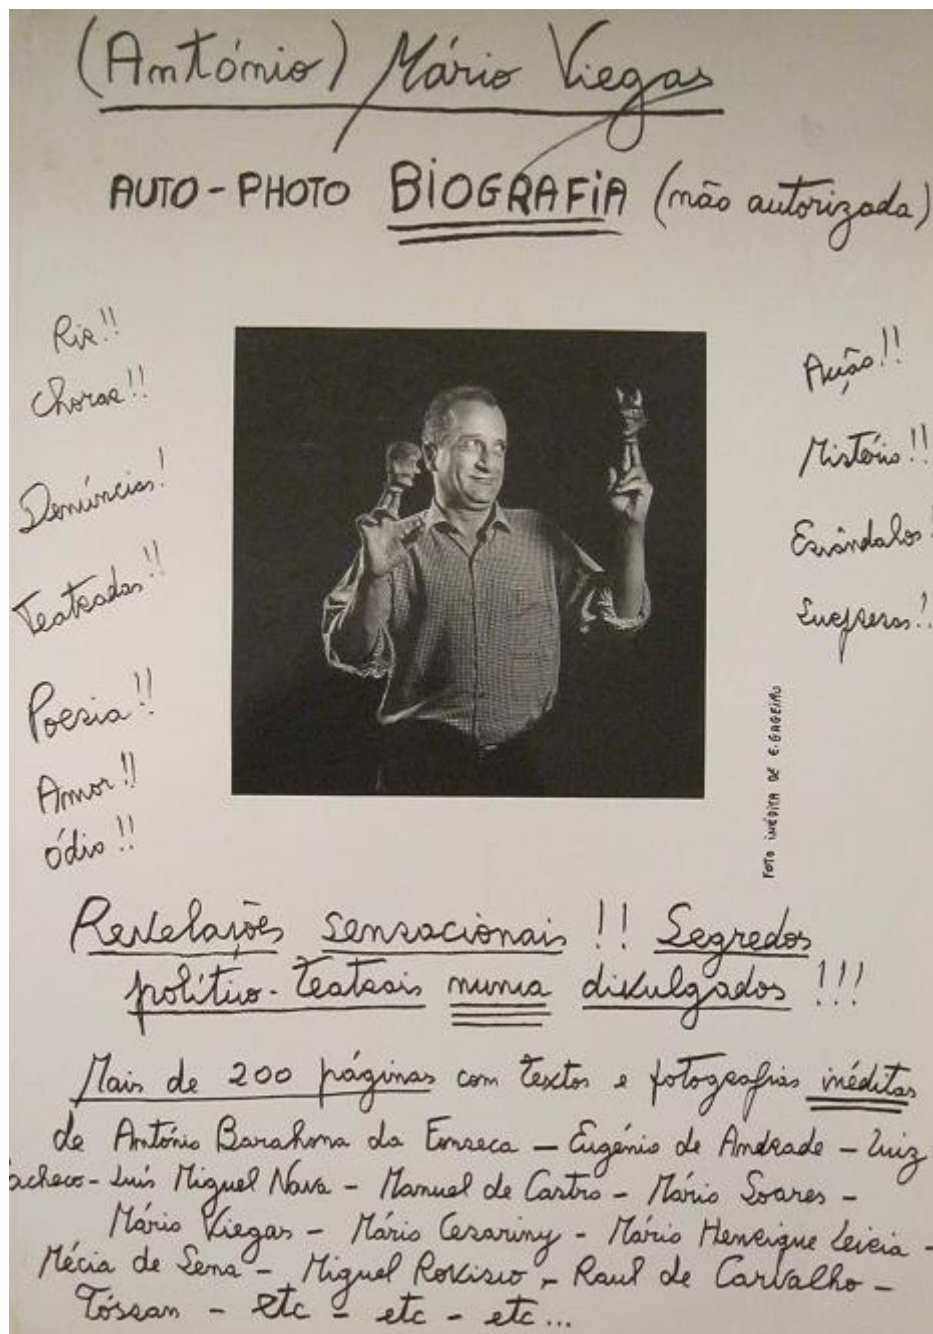 (António) Mário Viegas
AUTO-PHOTO BIOGRAFIA (não autorizada)
Rir!!
Chorar!!
Denúncias!
Teatradas!!
Poesia!!
Amor!!
ódio!!
Acção!!
Mistério!!
Escândalos!
Surpresas!!
FOTO INÉDITA DE E. GAGEIRO
Revelações sensacionais!! Segredos
político-teatrais nunca divulgados!!!
Mais de 200 páginas com textos e fotografias inéditas
de António Barahona da Fonseca – Eugénio de Andrade – Luiz
Pacheco – Luís Miguel Nava – Manuel de Castro – Mário Soares –
Mário Viegas – Mário Cesariny – Mário Henrique Leiria –
Mécia de Sena – Miguel Rovisco – Raul de Carvalho –
Tóssan – etc – etc – etc...